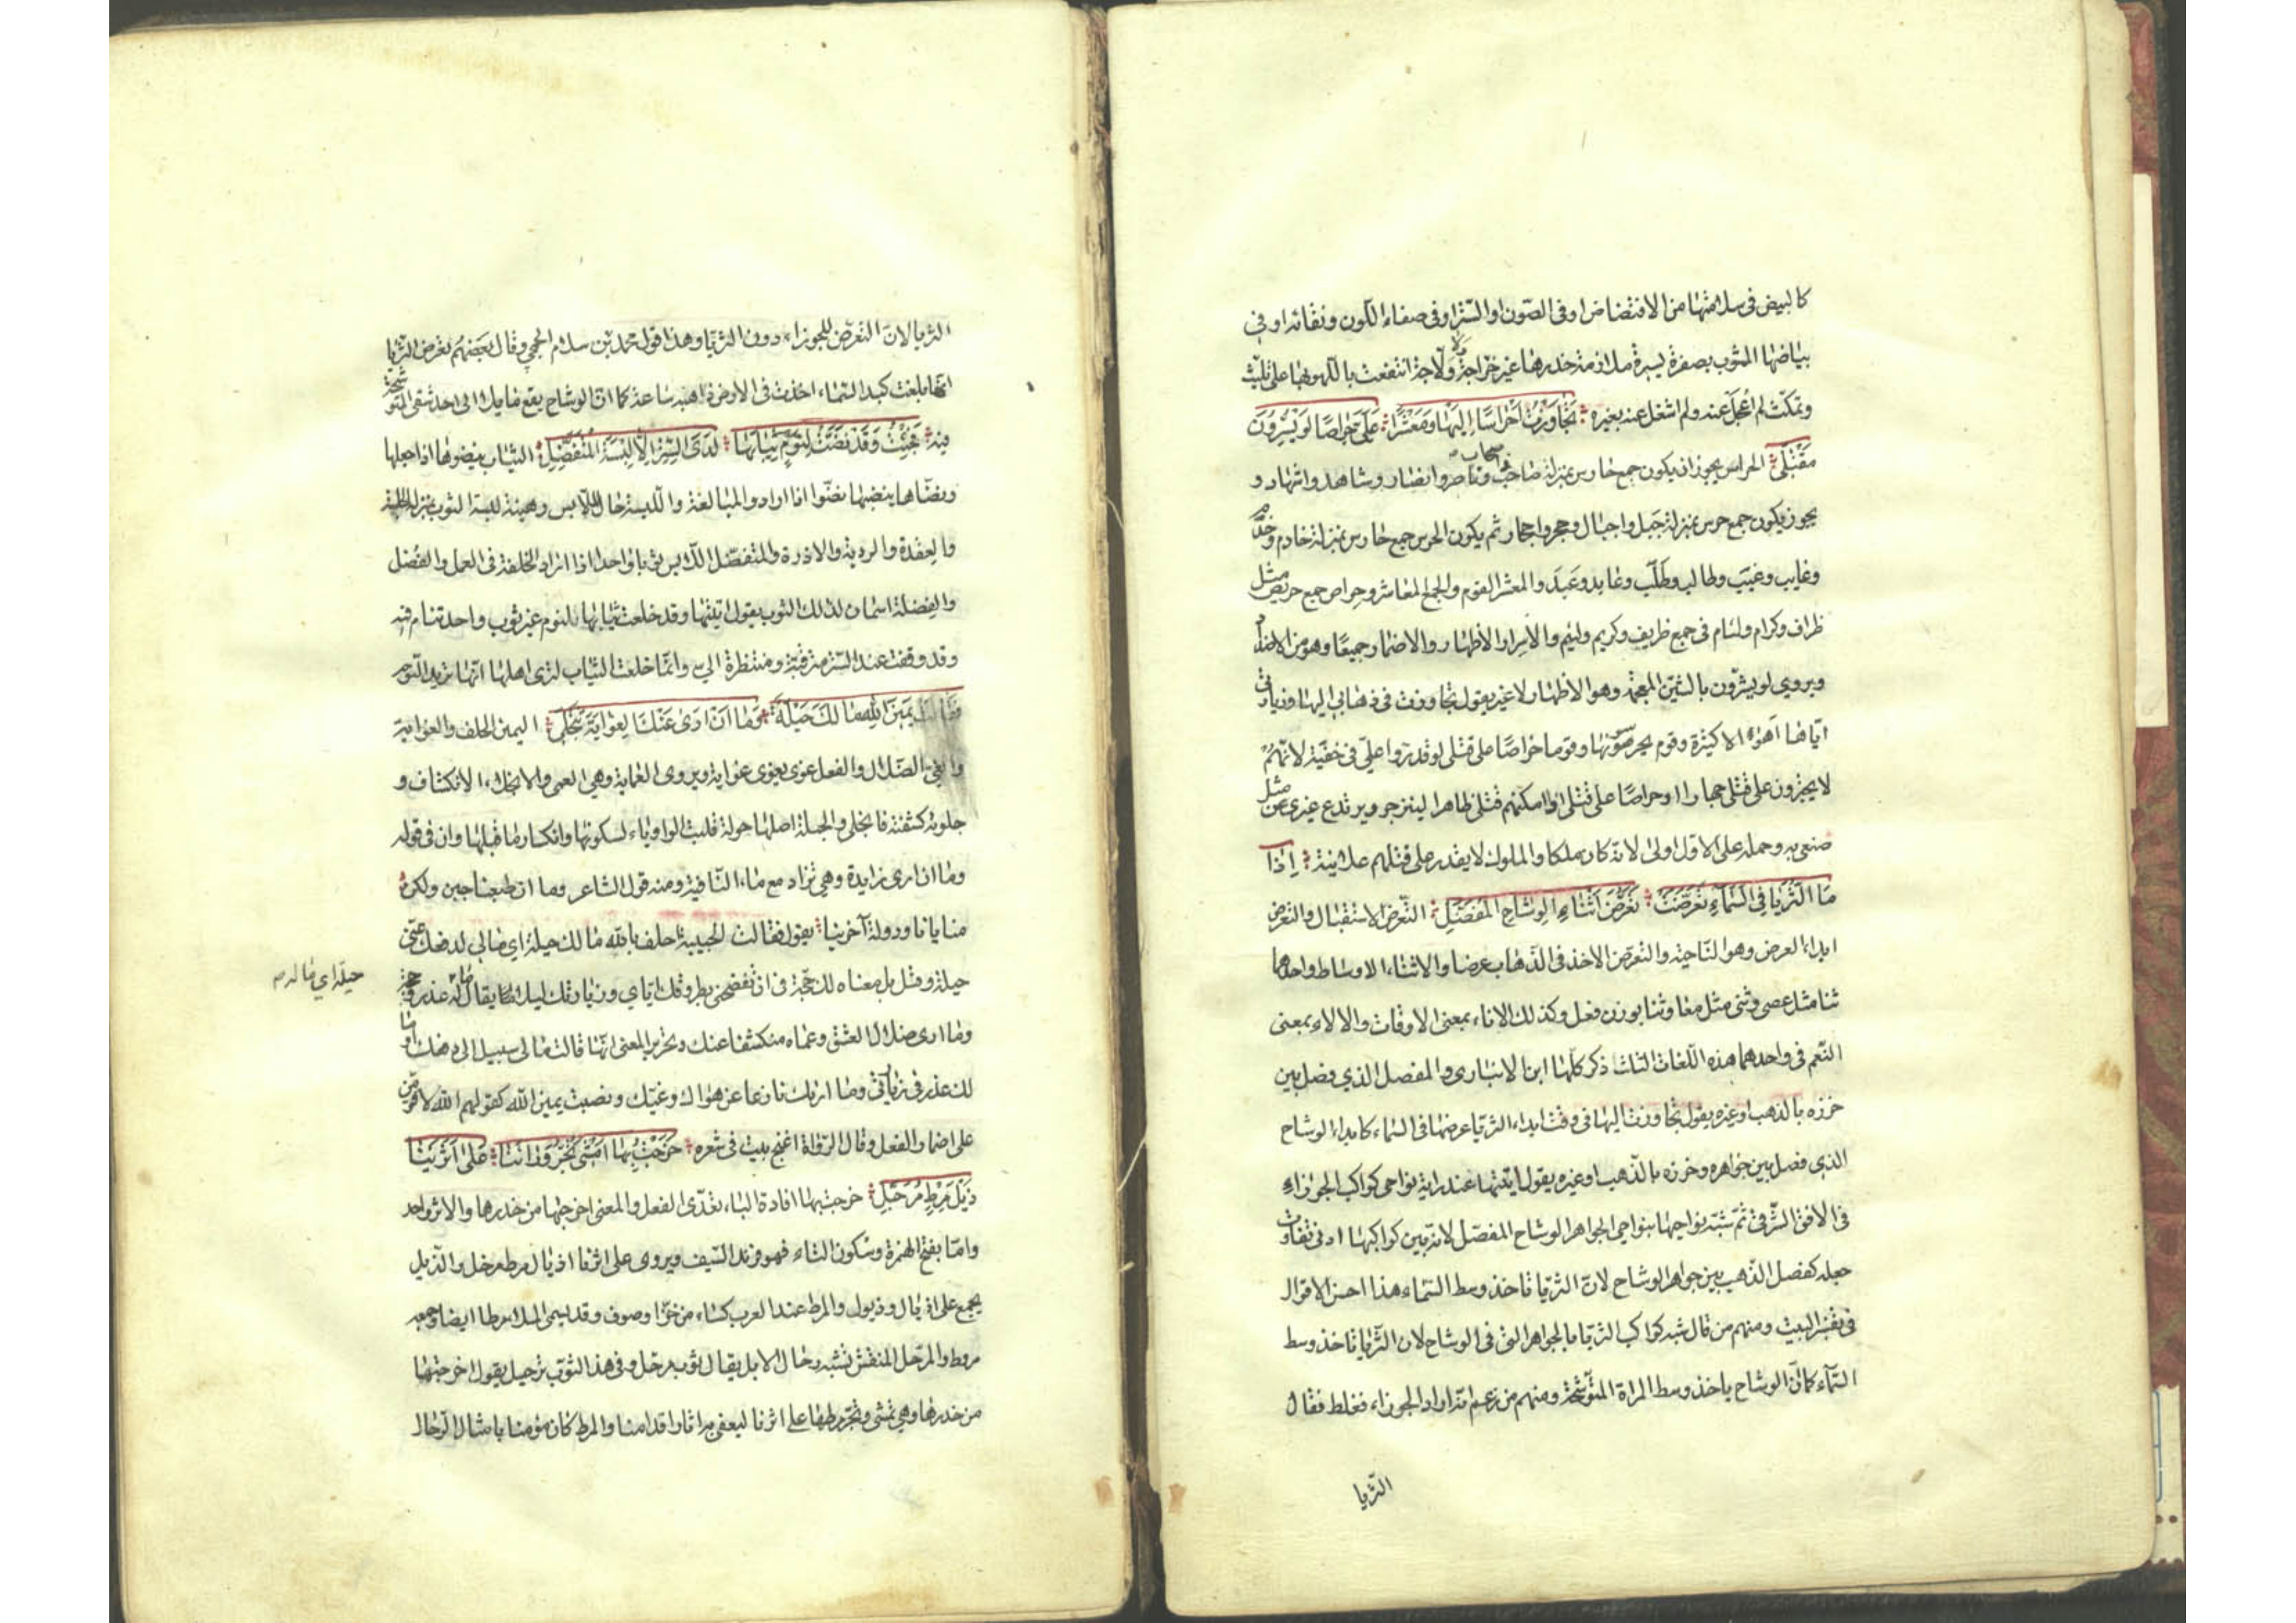 كالبيض في سلامتها من الافتضاض او في الصون والستر او في صفاء اللون ونقائه او في
بياضها المشوب بصفرة يسيرة ملازمة خدرها غير خراجة ولاجة انتفعت باللهو بها على تلبث
وتمكث لم اعجل عنه ولم اشغل عنه بغيره تَجَاوَزْتُ اَحْرَاسًا اِلَيْهَا وَمَعْشَرًا عَلَيَّ حِرَاصًا لَوْ يُسِرُّونَ
مَقْتَلِي الحراس يجوز ان يكون جمع حارس بمنزلة صاحب واصحاب وناصر وانصار وشاهد واشهاد و
يجوز ان يكون جمع حرس بمنزلة جبل واجبال وحجر واحجار ثم يكون الحرس جمع حارس بمنزلة خادم وخدم
وغايب وغيب وطالب وطلب وعابد وعبد والمعشر القوم والجمع المعاشر وحراص جمع حريص مثل
ظراف وكرام ولئام في جمع ظريف وكريم ولئيم والاسرار الاظهار والاضمار جميعا وهو من الاضداد
ويروى لو يشرون بالشين المعجمة وهو الاظهار لا غير يقول تجاوزت في ذهابي اليها وزيارتي
اياها اهوالا كثيرة وقوم يحرسونها وقوما حراصا على قتلي لو قدروا علي في خفية لانهم
لا يجترون على قتلي جهارا او حراصا على قتلي لو امكنهم قتلي ظاهرا لينزجر ويرتدع غيري عن مثل
صنعي به وحمله على الاول اولى لانه كان ملكا والملوك لا يقدر على قتلهم علانية اِذَا
مَا الثُّرَيَّا فِي السَّمَاءِ تَعَرَّضَتْ تَعَرُّضَ اَثْنَاءِ الوِشَاحِ المُفَصَّلِ التعرض الاستقبال والتعرض
ابداء العرض وهو الناحية والتعرض الاخذ في الذهاب عرضا والاثناء الاوساط واحدها
ثنا مثل عصى وثنى مثل معا وثنا بوزن فعل وكذلك الاناء بمعنى الاوقات والالاء بمعنى
النعم في واحدهما هذه اللغات الثلث ذكر كلها ابن الانباري والمفصل الذي فصل بين
خرزه بالذهب او غيره يقول تجاوزت اليها في وقت ابداء الثريا عرضها في السماء كابداء الوشاح
الذي فصل بين جواهره وخرزه بالذهب او غيره يقول اتيتها عند راية نواحي كواكب الجوزاء
في الافق الشرقي ثم شبه نواحيها بنواحي الجواهر الوشاح المفصل لانه بين كواكبها ادنى تفاوت
جعله كفصل الذهب بين جواهر الوشاح لان الثريا تاخذ وسط السماء هذا احسن الاقوال
في تفسير البيت ومنهم من قال شبه كواكب الثريا بالجواهر التي في الوشاح لان الثريا تاخذ وسط
السماء كما ان الوشاح ياخذ وسط المراة المتوشحة ومنهم من زعم انه اراد الجوزاء فغلط فقال
الثريا
الثريا لان التعرض للجوزاء دون الثريا وهذا قول محمد بن سلام الجمحي وقال بعضهم تعرض الثريا
انها بلغت كبد السماء اخذت في الارض ذاهبة ساعة كما ان الوشاح يقع مايلا الى احد شقي المتوشحة
فيه فَجِئْتُ وَقَدْ نَضَتْ لِنَوْمٍ ثِيَابَهَا لَدَى السِّتْرِ اِلَّا لِبْسَةَ المُتَفَضِّلِ الثياب ينضوها اذا خلعها
ونضاها ينضيها نضوا اذا ارادوا المبالغة واللبسة حال اللابس وهيئة لبسة الثوب بمنزلة الجلسة
والعقدة والردية والازرة والمتفضل اللابس ثوبا واحدا اذا اراد الخلفة في العمل والفضل
والفضلة اسمان لذلك الثوب يقول اتيتها وقد خلعت ثيابها للنوم غير ثوب واحد تنام فيه
وقد وقفت عند الستر مترقبة ومنتظرة الي وانما خلعت الثياب لترى اهلها انها تريد النوم
فَقَالَتْ يَمِينَ اللهِ مَا لَكَ حِيلَةٌ وَمَا اَنْ اَرَى عَنْكَ الغِوَايَةَ تَنْجَلِي اليمين الحلف والغواية
والغي الضلال والفعل غوى يغوي غواية ويروى العماية وهي العمى والانجلاء الانكشاف و
جلوته كشفته فانجلى والحيلة اصلها حولة قلبت الواو ياء لسكونها وانكسار ما قبلها وان في قوله
وما ان ارى زايدة وهي تزاد مع ماء النافية ومنه قول الشاعر وما ان طبنا جبن ولكن
منايانا ودولة آخرينا يقول فقالت الحبيبة احلف بالله ما لك حيلة اي مالي لدفعك عني
حيلة وقيل بل معناه لك حجة في ان تفضحني بطروقك اياي وزيارتك ليلا كما يقال ما له عذر وحجة
حيلة اي ماله
وما ارى ضلال العشق وعماه منكشفا عنك وتحرير المعنى انها قالت مالي سبيل الى دفعك او ما
لك عذر في زيارتي وما اراك نازعا عن هواك وغيك ونصبت يمين الله كقولهم الله لاقومن
على اضمار الفعل وقال الرواة اغنج بيت في شعره خَرَجْتُ بِهَا اَمْشِي تَجُرُّ وَرَاءَنَا عَلَى اَثَرَيْنَا
ذَيْلَ مِرْطٍ مُرَحَّلِ خرجت بها افادة الباء تعدى الفعل والمعنى اخرجتها من خدرها والاثر واحد
واما بفتح الهمزة وسكون الثاء فهو فرند السيف ويروى على اثرنا اذيال مرط مرحل والذيل
يجمع على اذيال وذيول والمرط عند العرب كساء من خز او صوف وقد يسمى الملاء مرطا ايضا وجمعه
مروط والمرحل المنقش تشبه رحال الابل يقال ثوب مرحل وفي هذا الثوب ترحيل يقول اخرجتها
من خدرها وهي تمشي وتجر مرطها على اثرنا ليعفى به اثار اقدامنا والمرط كان مؤمنا بامثال الرحال